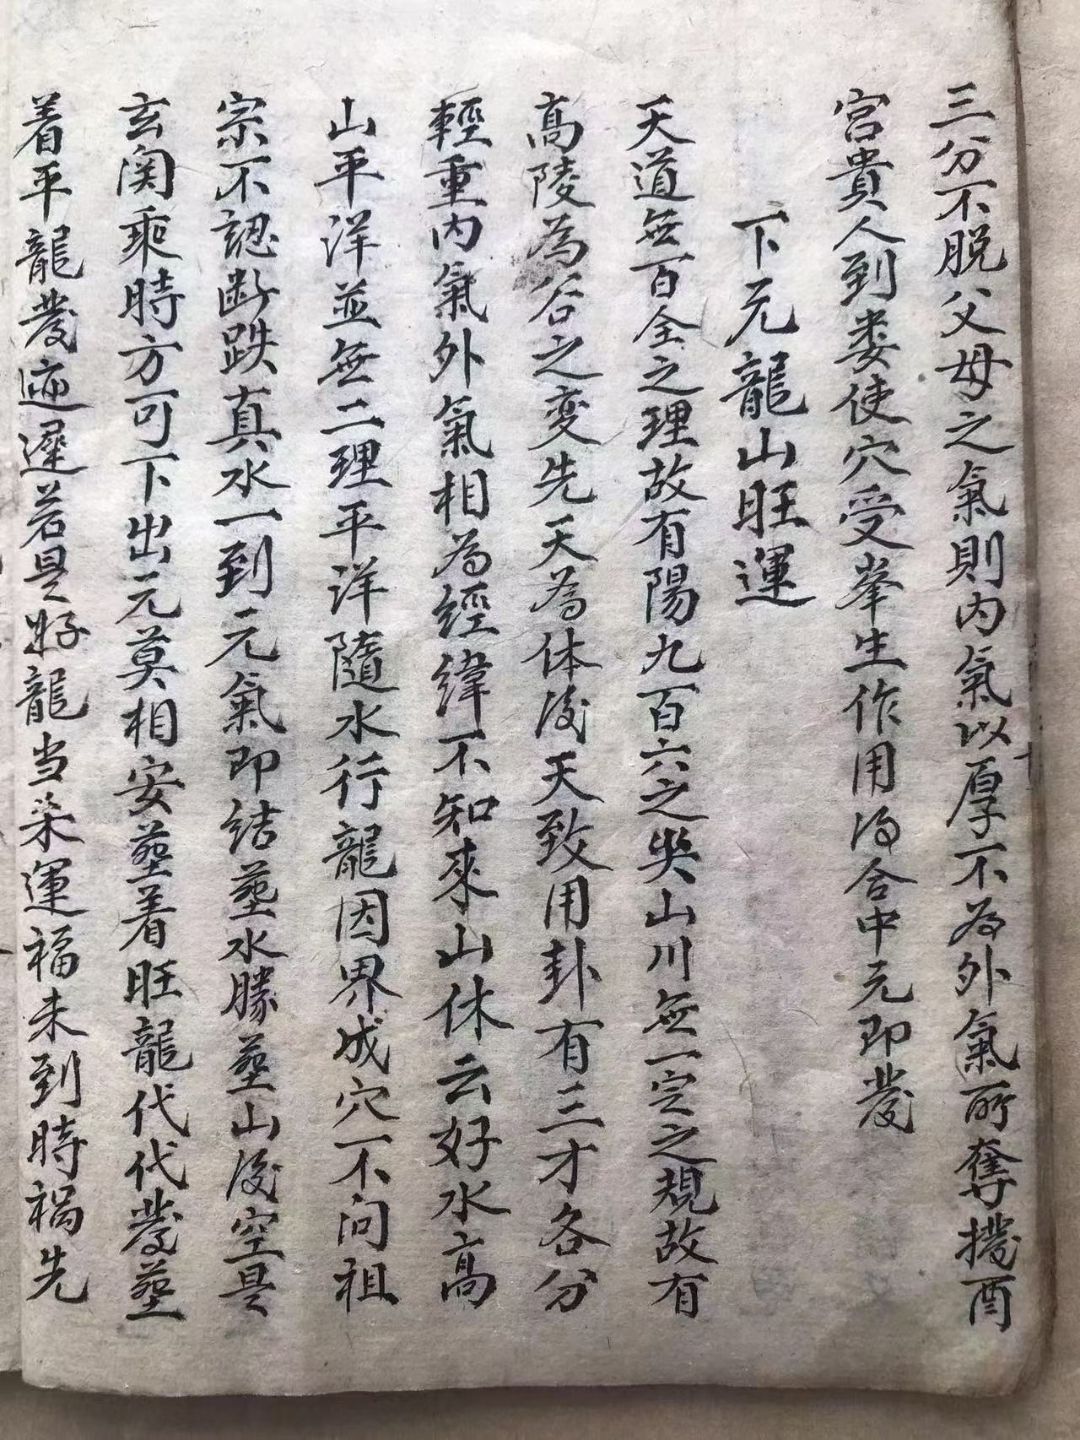 三分不脱父母之氣則内氣以厚不为外氣所奪撥酉
宫貴人到娄使穴受峯生作用得合中元即發
下元龍山旺運
天道無百全之理故有陽九百六之災山川無一定之規故有
高陵為谷之変先天為体後天致用卦有三才各分
輕重内氣外氣相為經緯不知來山休云好水高
山平洋並無二理平洋隨水行龍因界成穴不问祖
宗不認断跌真水一到元氣即結塟水勝塟山後空是
玄関乘時方可下出元莫相安塟着旺龍代代發塟
着平龍發迹遲若是好龍当染運福未到時禍先